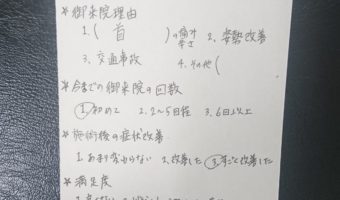 *御来院理由
1.( 首 )の痛み 辛さ 2. 姿勢改善
3. 交通事故 4. その他(
*今までの御来院の回数
1.初めて 2. 2〜5回程 3. 6回以上
*施術後の症状改善
1. あまり変わらない 2. 改善した 3.すごく改善した
*満足度